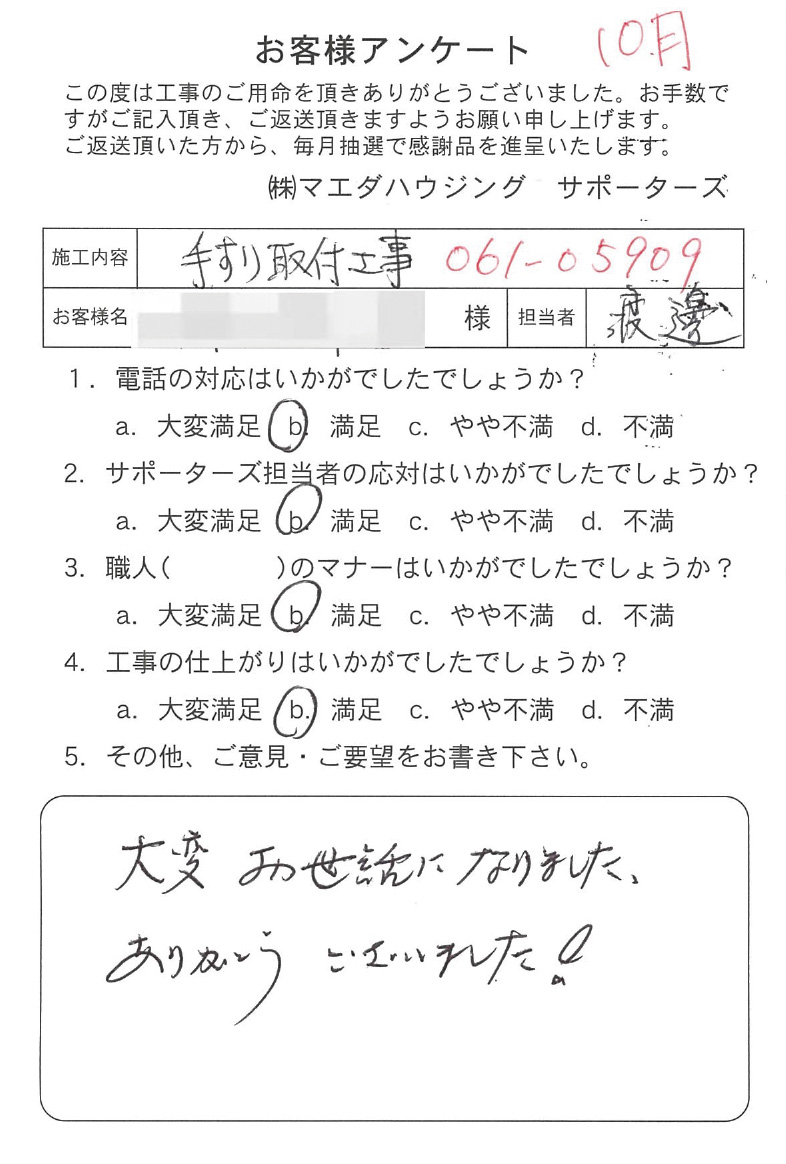 お客様アンケート 10月
この度は工事のご用命を頂きありがとうございました。お手数で
すがご記入頂き、ご返送頂きますようお願い申し上げます。
ご返送頂いた方から、毎月抽選で感謝品を進呈いたします。
㈱マエダハウジング サポーターズ
施工内容 手すり取付工事 061-05909
お客様名 様 担当者 渡邊
1. 電話の対応はいかがでしたでしょうか？
a. 大変満足 b. 満足 c. やや不満 d. 不満
2. サポーターズ担当者の応対はいかがでしたでしょうか？
a. 大変満足 b. 満足 c. やや不満 d. 不満
3. 職人( )のマナーはいかがでしたでしょうか？
a. 大変満足 b. 満足 c. やや不満 d. 不満
4. 工事の仕上がりはいかがでしたでしょうか？
a. 大変満足 b. 満足 c. やや不満 d. 不満
5. その他、ご意見・ご要望をお書き下さい。
大変お世話になりました、
ありがとうございました！